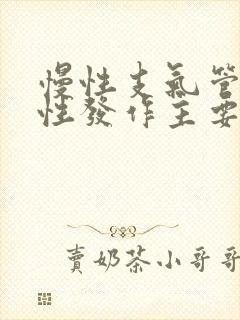 慢性支氣管
性發作主要
賣奶茶小哥哥